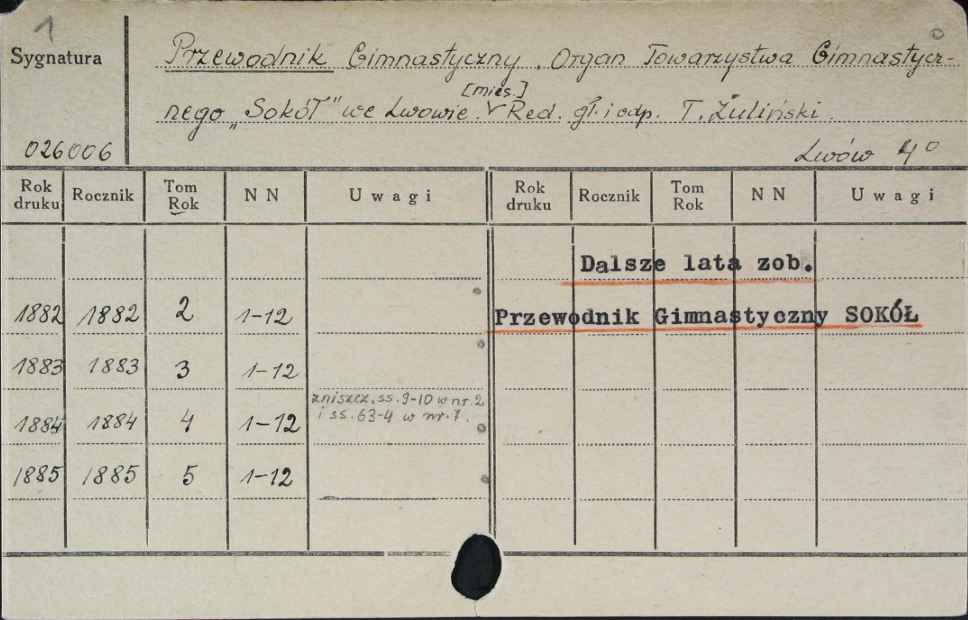 1
Sygnatura
Przewodnik Gimnastyczny. Organ Towarzystwa Gimnastycz-
[mies.]
nego „Sokół" we Lwowie. V Red. gł. i odp. T. Żuliński.
026006
Lwów 4°
Rok druku Rocznik Tom Rok N N Uwagi Rok druku Rocznik Tom Rok N N Uwagi
Dalsze lata zob.
1882 1882 2 1-12 Przewodnik Gimnastyczny SOKÓŁ
1883 1883 3 1-12
zniszcz. ss. 9-10 w nr. 2
1884 1884 4 1-12 i ss. 63-4 w nr. 7.
1885 1885 5 1-12